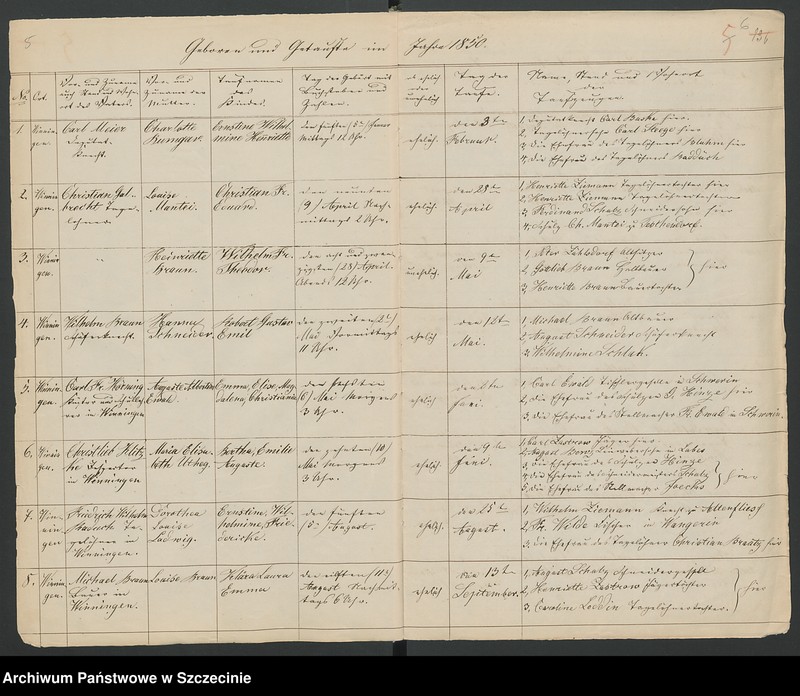 5
6
Geboren und Getaufte im Jahre 1850.
No. Ort. Vor- und Zuname auch Stand und Wohnort des Vaters. Vor- und Zuname der Mutter. Taufnamen des Kindes. Tag der Geburt mit Buchstaben und Zahlen. ob ehelich oder unehelich Tag der Taufe. Name, Stand und Wohnort der Taufzeugen.
1. Winningen. Carl Meier Deputat-Knecht. Charlotte Ernstine Wilhelmine Henriette den fünften (5) Januar Mittags 12 Uhr. ehelich. den 3ten Februar. 1, Deputatknecht Carl Buske hier.
2, Tagelöhnersohn Carl Stege hier
3, die Ehefrau des Tagelöhners Bluhm hier
4, die Ehefrau des Tagelöhners Radduch
2. Winningen. Christian Galbrecht Tagelöhner Louise Mantei. Christian Fr. Eduard. den neunten (9) April Nachmittags 2 Uhr. ehelich. den 28ten April 1, Henriette Liemann Tagelöhnertochter hier
2, Henriette Liemann Tagelöhnertochter
3, Ferdinand Schulz Schneidersohn hier
4, Schulz Ch. Mantei z.
3. Winningen. " Heinriette Braun. Wilhelm Fr. Theodor. den acht und zwanzigsten (28) April Abends 12 Uhr. unehelich. den 9ten Mai 1, Peter Lübsdorf Altsitzer
2, Gottlieb Braun Halbbauer
3, Henriette Braun Bauertochter
hier
4. Winningen. Wilhelm Braun Schäferknecht. Hanna Schneider. Robert Gustav Emil den zweiten (2) Mai Vormittags 11 Uhr. ehelich den 12ten Mai. 1, Michael Braun Altbauer
2, August Schneider Schäferknecht
3, Wilhelmine Schlak.
5. Winningen. Carl Fr. Küster und Schullehrer in Winningen Auguste Albertine Ewald. Emma, Elise, Magdalena, Christiania den sechsten (6) Mai Morgens 3 Uhr. ehelich den Juni. 1, Carl Ewald Tischlergeselle in Schwerin
2, die Ehefrau des Schulzen G. Hinze hier
3, die Ehefrau des Stellmacher Fr. Ewald in Schwerin.
6. Winningen. Christlieb in Winningen Maria Elisabeth Bertha, Emilie Auguste. den zehnten (10) Mai Morgens 3 Uhr. ehelich. den 9ten Juni. 1, Carl Zastrow Jäger hier
2, August in Labes
3, die Ehefrau des Schulzen Heinze
4, die Ehefrau des Schneidermeisters Schulz
5, die Ehefrau des Stellmacher Joecks
hier
7. Winningen Friedrich Wilhelm Radduch Tagelöhner in Winningen. Dorothea Louise Ludwig. Ernstine, Wilhelmine, Friedericke. den fünften (5) August. ehelich. den 25ten August. 1, Wilhelm Liemann Knecht z. Altenfliess
2, Fr. Wolde Tischler in Wangerin
3, die Ehefrau des Tagelöhner Christian hier
8. Winningen. Michael Braun Bauer in Winningen. Louise Braun Klara Laura Emma den elften (11) August Nachmittags 6 Uhr. ehelich den 13ten September. 1, August Schulz Schneidergesell
2, Henriette Zastrow Jägertochter
3, Caroline Loddin Tagelöhnertochter.
hier
Archiwum Państwowe w Szczecinie